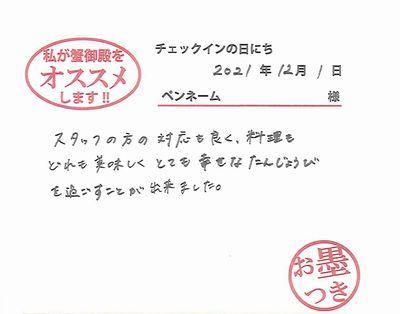 私が蟹御殿を
オススメ
します!!
チェックインの日にち
2021年12月1日
ペンネーム 様
スタッフの方の対応も良く、料理も
どれも美味しくとても幸せなたんじょうび
を過ごすことが出来ました。
お墨
つき